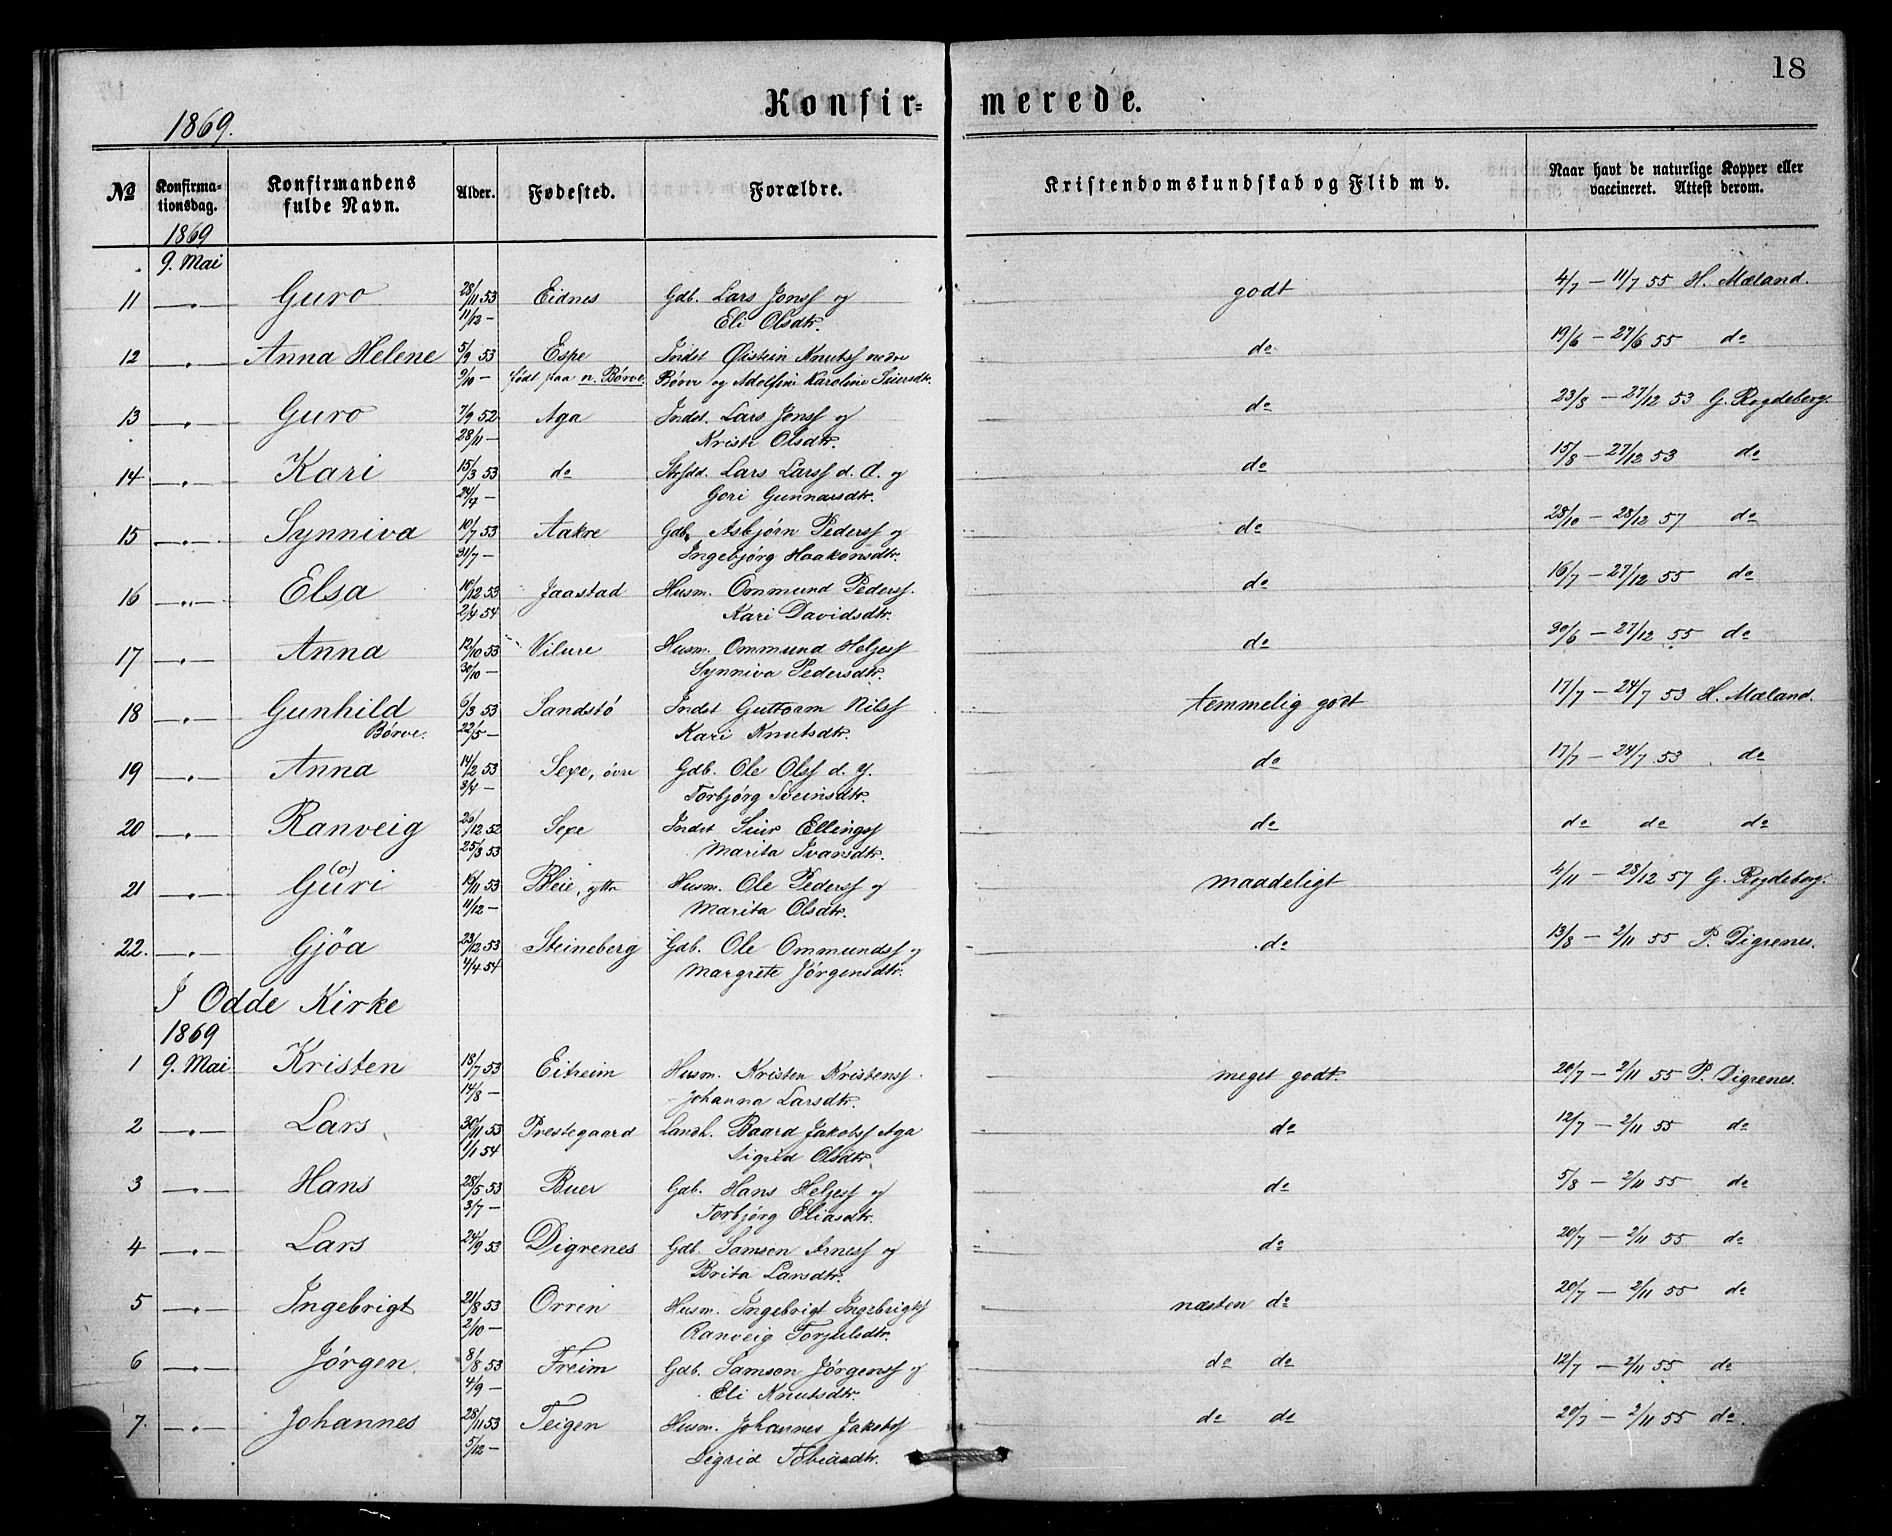 18
Konfir= merede.
1869.
No Konfirmationsdag. Konfirmandens fulde Navn. Alder. Fødested. Forældre. Kristendomskundskab og Flid m v. Naar havt de naturlige Kopper eller vaccineret. Attest derom.
1869
9. Mai
11 —〃— Guro 28/11 53 Eidnes Gdb. Lars Jonsf og godt 4/7 — 11/7 55 H. Mæland.
11/12 — Eli Olsdtr.
12 —〃— Anna Helene 5/9 53 Espe Indst Øistein Knutsf nedre do 19/6 — 27/6 55 do
9/10 — født paa n. Børve. Børve og Adolfine Karoline Siursdtr.
13 —〃— Guro 7/9 52 Aga Indst. Lars Jonsf og do 23/8 — 27/12 53 G. Rogdeberg.
28/11 — Kristi Olsdtr.
14 —〃— Kari 15/3 53 do Lars Larsf d. Æ. og do 15/8 — 27/12 53 do
24/4 — Gori Gunnarsdtr.
15 —〃— Synniva 10/7 53 Aakre Gdb. Asbjørn Pedersf og do 28/10 — 28/12 57 do
31/7 — Ingebjørg Haakonsdtr.
16 —〃— Elsa 10/12 53 Jaastad Husm. Ommund Pedersf. do 16/7 — 27/12 55 do
2/4 54 Kari Davidsdtr.
17 —〃— Anna 12/10 53 Vilure Husm. Ommund Heljesf do 30/6 — 27/12 55 do
30/10 — Synniva Pedersdtr.
18 —〃— Gunhild 6/3 53 Sandstø Indst Guttorm Nilsf temmelig godt 17/7 — 24/7 53 H. Mæland.
Børve. 22/5 — Kari Knutsdtr.
19 —〃— Anna 14/2 53 Sexe, øvre Gdb. Ole Olsf d. y. do 17/7 — 24/7 53 do
3/4 — Torbjørg Sveinsdtr.
20 —〃— Ranveig 26/12 52 Sexe Indst Siur Ellingsf do do do do
25/3 53 Marita Ivarsdtr.
21 —〃— Guri (o) 16/11 53 Bleie, ytre Husm. Ole Pedersf og maadeligt 4/11 — 28/12 57 G. Rogdeberg.
11/12 — Marita Olsdtr.
22. —〃— Gjøa 23/12 53 Steineberg Gdb. Ole Ommundsf og do 13/8 — 2/11 55 P. Digrenes.
4/4 54 Margrete Jørgensdtr.
I Odde Kirke
1869
1 9. Mai Kristen 18/7 53 Eitreim Husm. Kristen Kristensf meget godt. 20/7 — 2/11 55 P. Digrenes.
14/8 — Johanna Larsdtr.
2 —〃— Lars 30/11 53 Prestegaard Landh. Baard Jakobsf Aga do 12/7 — 2/11 55 do
1/1 54 Sigrid Olsdtr.
3 —〃— Hans 28/5 53 Buer Gdb. Hans Heljesf og do 5/8 — 2/11 55 do
3/7 — Torbjørg Eliasdtr.
4 —〃— Lars 24/9 53 Digrenes Gdb. Samson Arnesf og do 20/7 — 2/11 55 do
Brita Larsdtr.
5 —〃— Ingebrigt 21/8 53 Orren Husm. Ingebrigt Ingebrigtsf næsten do 20/7 — 2/11 55 do
2/10 — Ranveig Torjulsdtr.
6 —〃— Jørgen 8/8 53 Freim Gdb. Samson Jørgensf og do do 12/7 — 2/11 55 do
4/9 — Eli Knutsdtr.
7. —〃— Johannes 28/11 53 Teigen Husm. Johannes Jakobsf do do 20/7 — 2/11 55 do.
5/12 — Sigrid Tobiasdtr.